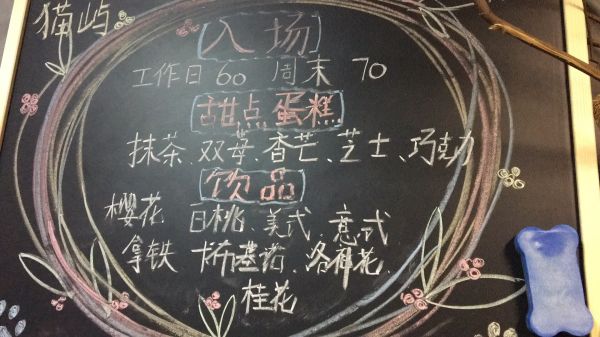 猫屿
入场
工作日60 周末 70
甜点蛋糕
抹茶、双莓、香芒、芝士、巧克力
饮品
樱花 白桃、美式、意式
拿铁 卡布基诺、洛神花、
桂花